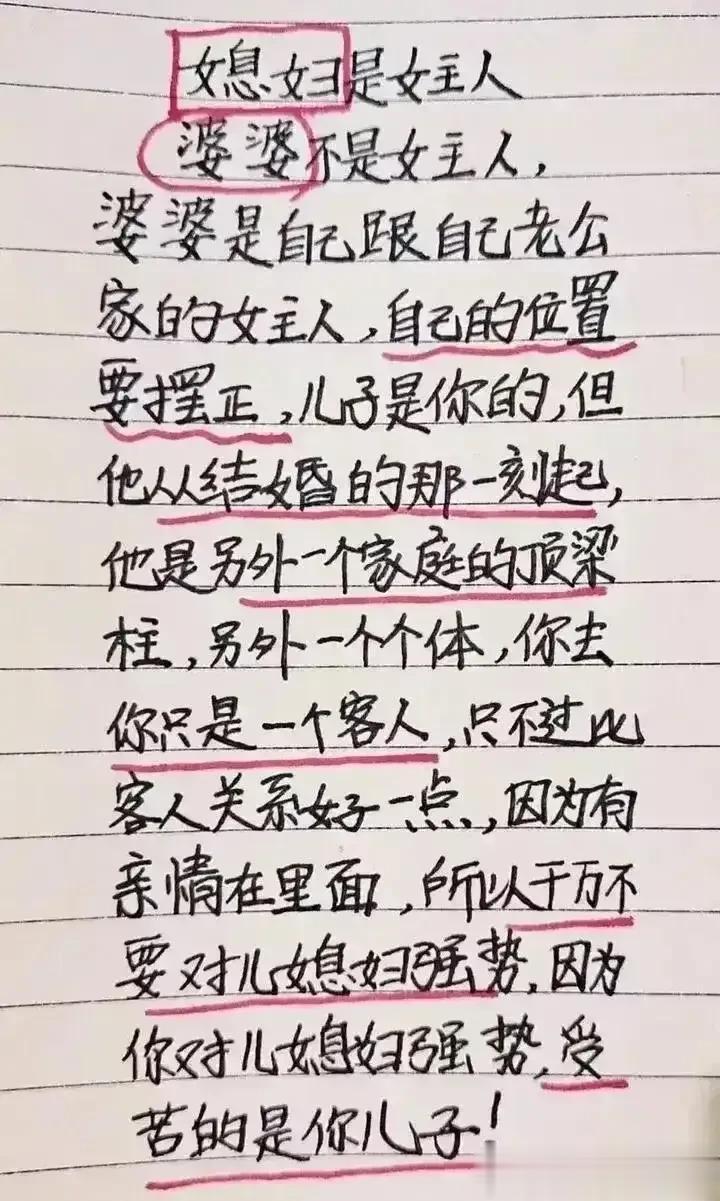 媳妇是女主人
婆婆不是女主人,
婆婆是自己跟自己老公
家的女主人,自己的位置
要摆正,儿子是你的,但
他从结婚的那一刻起,
他是另外一个家庭的顶梁
柱,另外一个个体,你去
你只是一个客人,只不过比
客人关系好一点,因为有
亲情在里面,所以千万不
要对儿媳妇强势,因为
你对儿媳妇强势,受
苦的是你儿子!